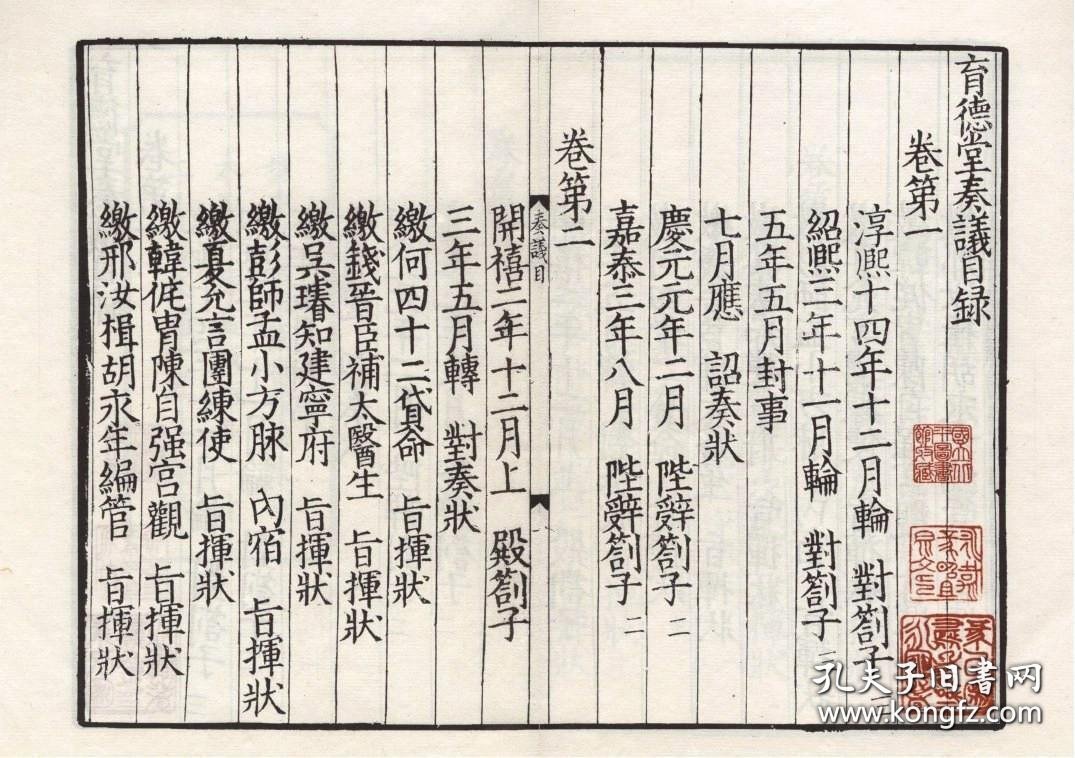 育德堂奏議目録
卷第一
淳熙十四年十二月輪 對劄子
紹熙三年十一月輪 對劄子二
五年五月封事
七月應 詔奏狀
慶元元年二月 陛辭劄子二
嘉泰三年八月 陛辭劄子二
卷第二
奏議目
開禧二年十二月上 殿劄子
三年五月轉 對奏狀
繳何四十二貸命 旨揮狀
繳錢晉臣補太醫生 旨揮狀
繳吳璿知建寧府 旨揮狀
繳彭師孟小方脉 內宿 旨揮狀
繳夏允言團練使 旨揮狀
繳韓侂冑陳自强宫觀 旨揮狀
繳邢汝楫胡永年編管 旨揮狀
孔夫子旧书网
www.kongfz.com